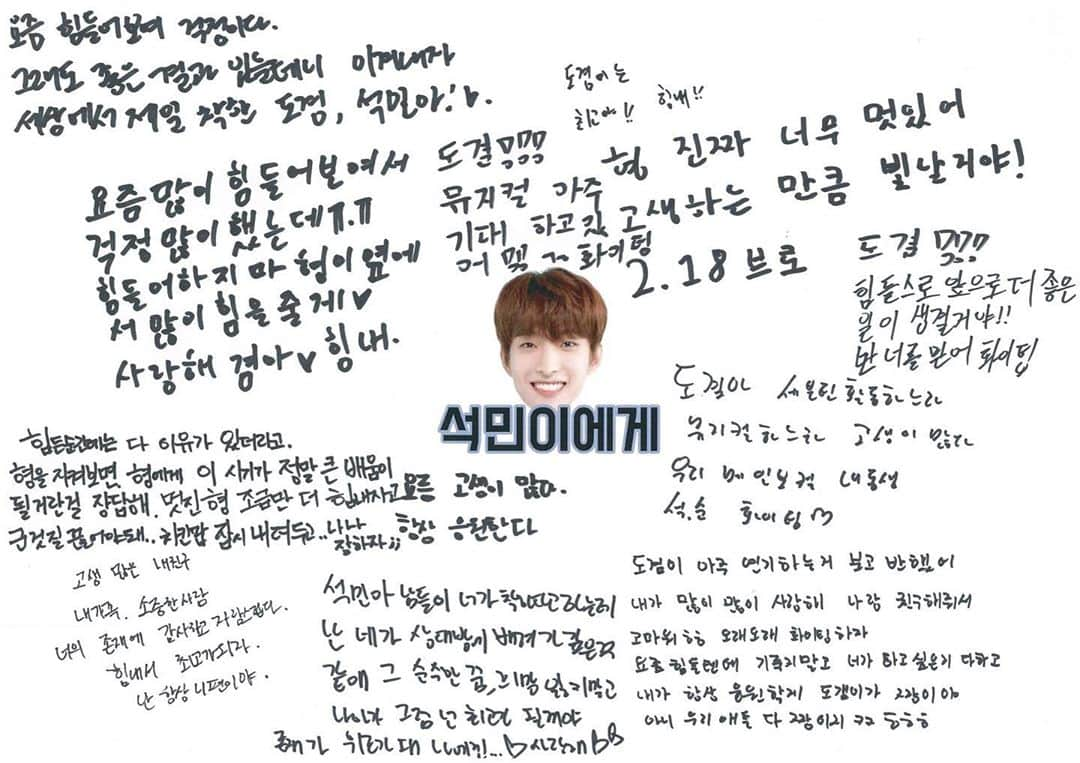 요즘 힘들어보여 걱정하다.
그래도 좋은 결과 있을테니 이겨내자
세상에서 제일 착한 도겸, 석민아!
도겸이는
최고야!! 힘내!!
요즘 많이 힘들어보여서
걱정 많이 했는데ㅠ.ㅠ
힘들어하지마 형이 옆에
서 많이 힘을 줄게♥
사랑해 겸아♥ 힘내.
도겸
뮤지컬 아주
기대 하고 있
어 화이팅
형 진짜 너무 멋있어
고생하는 만큼 빛날거야!
2.18 브로
도겸
힘들수록 앞으로 더 좋은
일이 생길거야!!
난 너를 믿어 화이팅
석민이에게
도겸아 세븐틴 활동하느라
뮤지컬하느라 고생이 많다
우리 메인보컬 내동생
석.순 화이팅♡
힘든순간에는 다 이유가 있더라고.
형을 지켜보면, 형에게 이 시기가 정말 큰 배움이
될거란걸 장담해. 멋진 형 조금만 더 힘내자고
군것질 끊어야돼.. 치킨팝 잠시 내려두고..
잘하자;;
요즘 고생이 많다.
항상 응원한다
고생 많은 내친구
내가족. 소중한사람
너의 존재에 감사하고 자랑스럽다.
힘내서 최고가되자.
난 항상 니편이야.
석민아 남들이 너가 착하다고 하는데
난 네가 상대방에 배려가 깊은것
같애 그 순수한 꿈 잃지말고
도겸이 아주 연기하는거 보고 반했어
내가 많이 많이 사랑해 나랑 친구해줘서
고마워 오래오래 화이팅하자
요즘 힘들텐데 기죽지말고 너가 하고싶은거 다하고
내가 항상 응원할게 도겸이가 그랑이야
아니 우리 애들 다